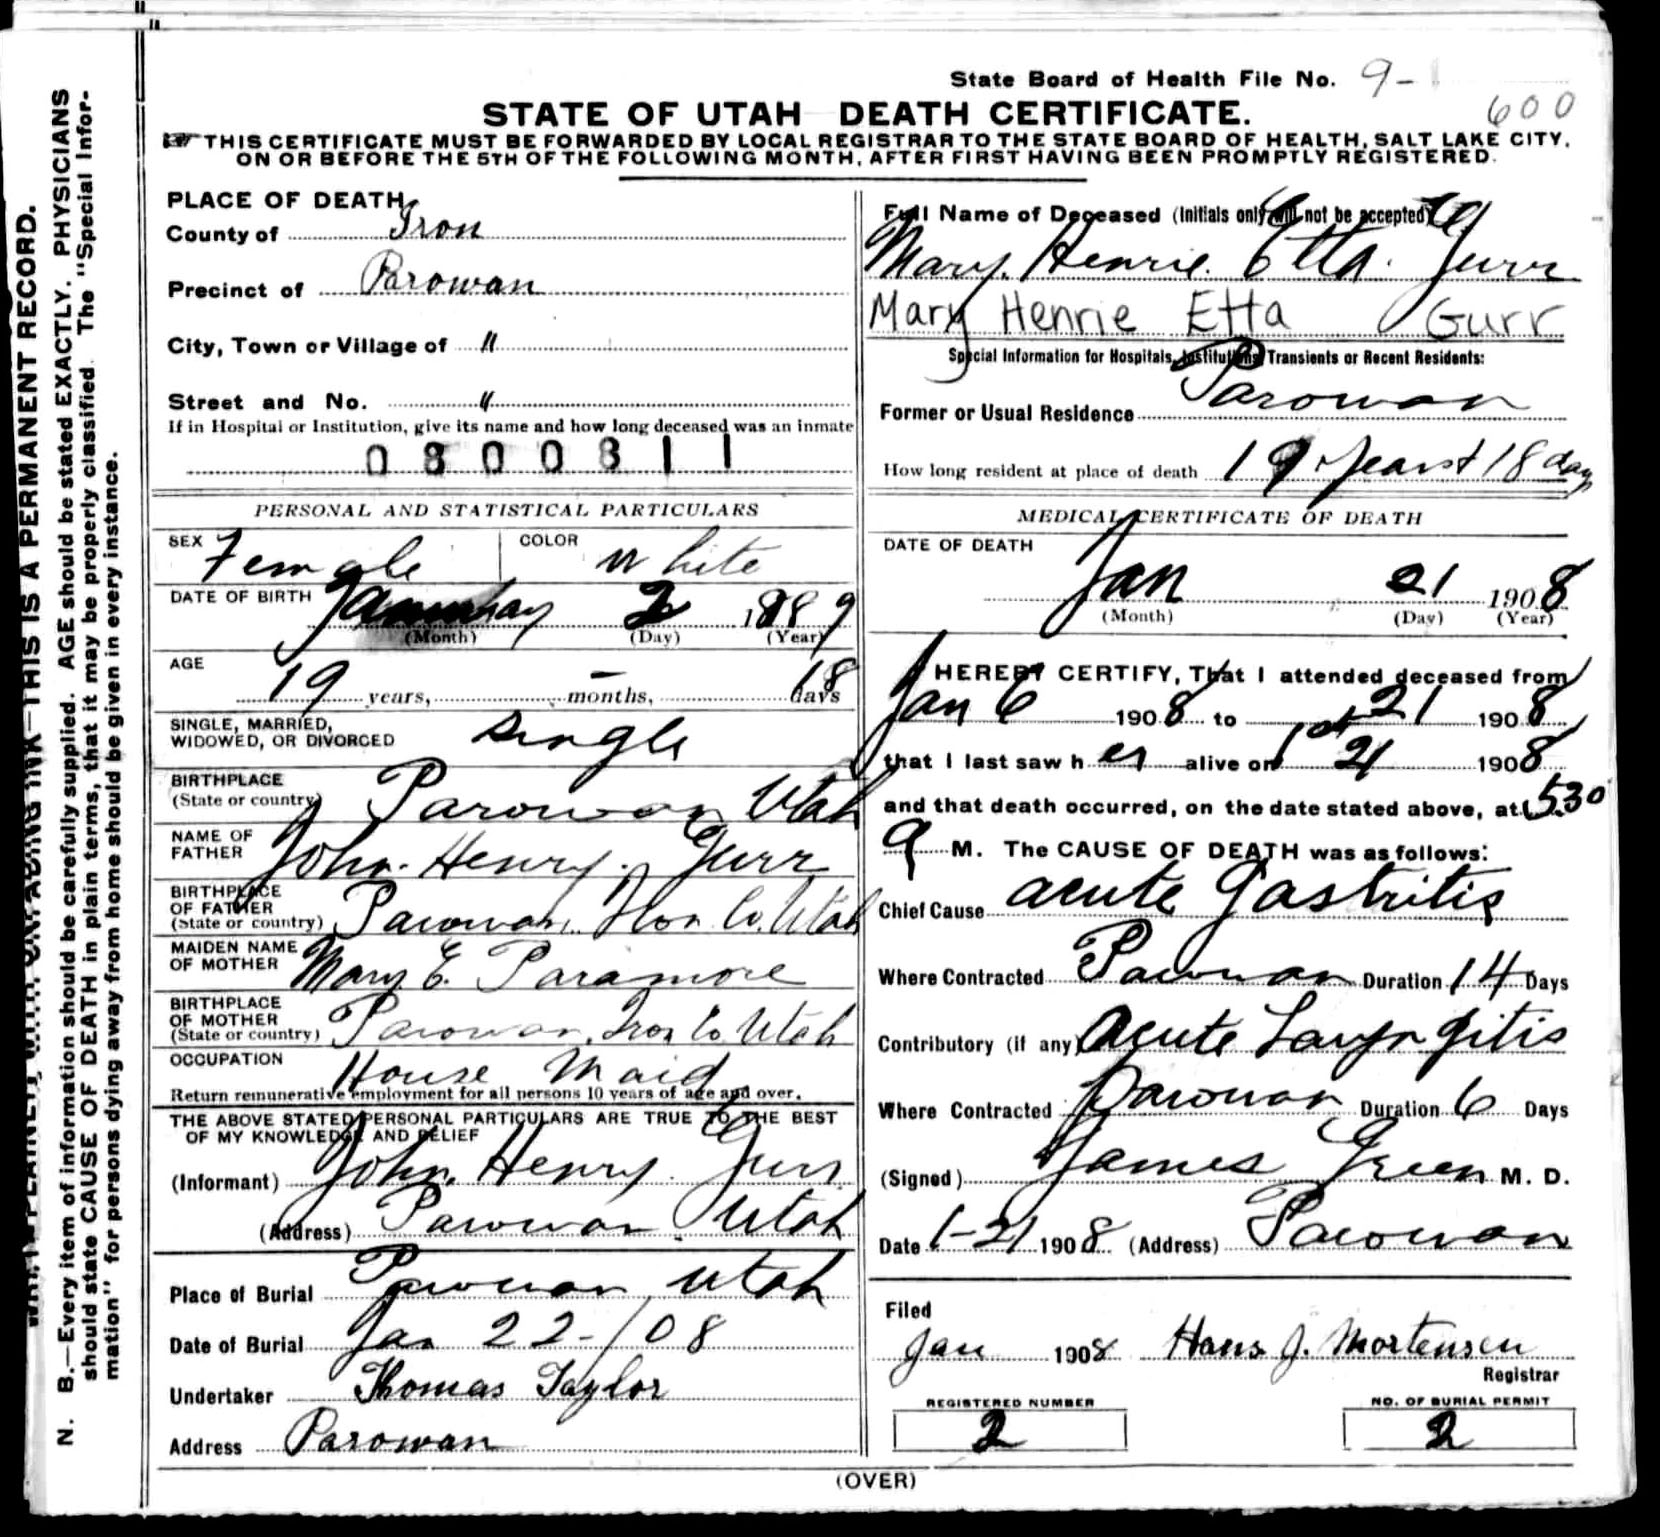 State Board of Health File No. 9-
600
STATE OF UTAH DEATH CERTIFICATE.
THIS CERTIFICATE MUST BE FORWARDED BY LOCAL REGISTRAR TO THE STATE BOARD OF HEALTH, SALT LAKE CITY,
ON OR BEFORE THE 5TH OF THE FOLLOWING MONTH, AFTER FIRST HAVING BEEN PROMPTLY REGISTERED.
N. B.—Every item of information should be carefully supplied. AGE should be stated EXACTLY. PHYSICIANS
should state CAUSE OF DEATH in plain terms, that it may be properly classified. The "Special Infor-
mation" for persons dying away from home should be given in every instance.
WRITE PLAINLY, WITH UNFADING INK—THIS IS A PERMANENT RECORD.
PLACE OF DEATH
County of Iron
Precinct of Parowan
City, Town or Village of "
Street and No. "
If in Hospital or Institution, give its name and how long deceased was an inmate
0800311
PERSONAL AND STATISTICAL PARTICULARS
SEX Female COLOR White
DATE OF BIRTH January 2 1889
(Month) (Day) (Year)
AGE 19 years, – months, 18 days
SINGLE, MARRIED,
WIDOWED, OR DIVORCED Single
BIRTHPLACE
(State or country) Parowan Utah
NAME OF
FATHER John Henry Gurr
BIRTHPLACE
OF FATHER
(State or country) Parowan Iron Co. Utah
MAIDEN NAME
OF MOTHER Mary E. Paramore
BIRTHPLACE
OF MOTHER
(State or country) Parowan, Iron Co Utah
OCCUPATION House Maid
Return remunerative employment for all persons 10 years of age and over.
THE ABOVE STATED PERSONAL PARTICULARS ARE TRUE TO THE BEST
OF MY KNOWLEDGE AND BELIEF
(Informant) John Henry Gurr
(Address) Parowan Utah
Place of Burial Parowan Utah
Date of Burial Jan 22-/08
Undertaker Thomas Taylor
Address Parowan
Full Name of Deceased (Initials only will not be accepted)
Mary Henrie Etta Gurr
Mary Henrie Etta Gurr
Special Information for Hospitals, Institutions, Transients or Recent Residents:
Former or Usual Residence Parowan
How long resident at place of death 19 years + 18 day
MEDICAL CERTIFICATE OF DEATH
DATE OF DEATH
Jan 21 1908
(Month) (Day) (Year)
I HEREBY CERTIFY, That I attended deceased from
Jan 6 1908 to 21 1908
that I last saw her alive on 21 1908
and that death occurred, on the date stated above, at 530
M. The CAUSE OF DEATH was as follows:
Chief Cause acute Gastritis
Where Contracted Parowan Duration 14 Days
Contributory (if any) Acute Laryngitis
Where Contracted Parowan Duration 6 Days
(Signed) James Green M. D.
Date 1-21 1908 (Address) Parowan
Filed
Jan 1908 Hans J. Mortensen
Registrar
REGISTERED NUMBER
2
NO. OF BURIAL PERMIT
2
(OVER)